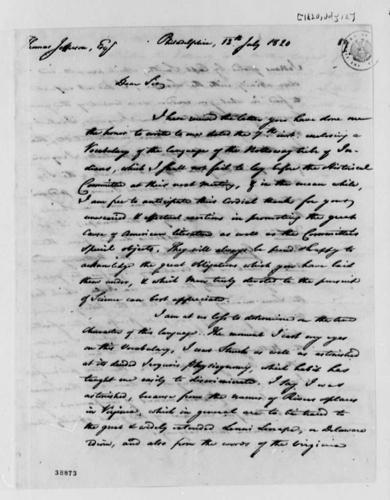 [1820, July 13]
Thomas Jefferson, Esqr Philadelphia, 13th July 1820
Dear Sir,
I have received the letter you have done me
the honor to write to me dated the 7th inst: enclosing a
Vocabulary of the language of the Nottoway tribe of In-
dians, which I shall not fail to lay before the Historical
Committee at their next Meeting, & in the mean while,
I am free to anticipate their Cordial thanks for your
unwearied & effectual exertions in promoting the great
Cause of American literature as well as the Committee's
special objects. They will always be proud & happy to
acknowledge the great obligations which you have laid
them under, & which Men truly devoted to the pursuit
of Science can best appreciate.
I am at no loss to determine on the true
character of this language. The moment I cast my eyes
on this Vocabulary, I was Struck as well as astonished
at its decided Iroquois Physiognomy, which habit has
taught me easily to discriminate. I say I was
astonished, because from the names of Rivers & places
in Virginia, which in general are to be traced to
the great & widely extended Lenni Lenape, or Delaware
Idiom, and also from the words of the Virginia
38873